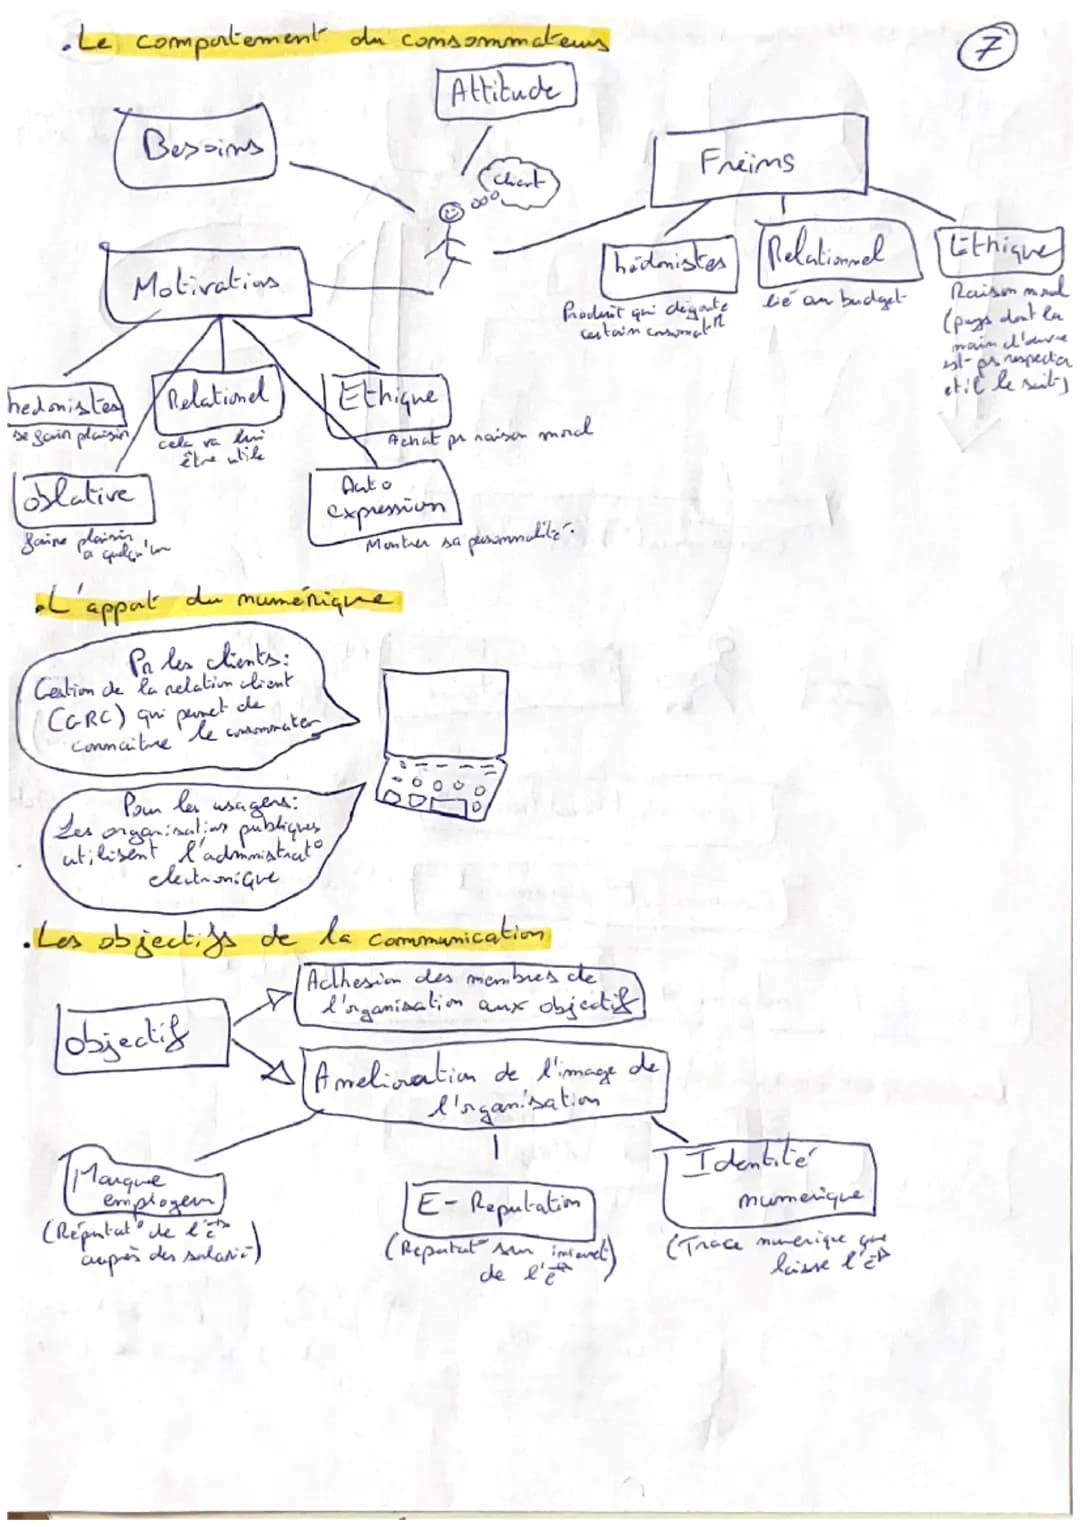 .Le comportement du consommateurs
7
Attitude
Besoins
Client
Freins
Motivations
hédonistes
Relationnel
Ethique
Produit qui dégoute
certain consomat°
lié au budget
Raison moral
(pays dont la
main d'œuvre
est ps respecter
et il le sait)
hedonistes
Relationel
Ethique
se fair plaisir
cela va lui
être utile
Achat pr raison moral
oblative
Auto
expression
faire plaisir
a quelqu'un
Montrer sa personnalité.
.L'apport du numérique
Pr les clients:
Gestion de la relation client
(GRC) qui permet de
connaitre le consommater
Pour les usagers:
Les organisations publiques
utilisent l'administrat°
electronique
.Les objectifs de la communication
Adhesion des membres de
l'organisation aux objectifs
objectif
Amelioration de l'image de
l'organisation
Marque
employeur
(Réputat° de l'e
auprès des salarié)
E-Reputation
(Reputat° sur internet)
de l'e
Identité
numerique
(Trace numerique que
laisse l'e